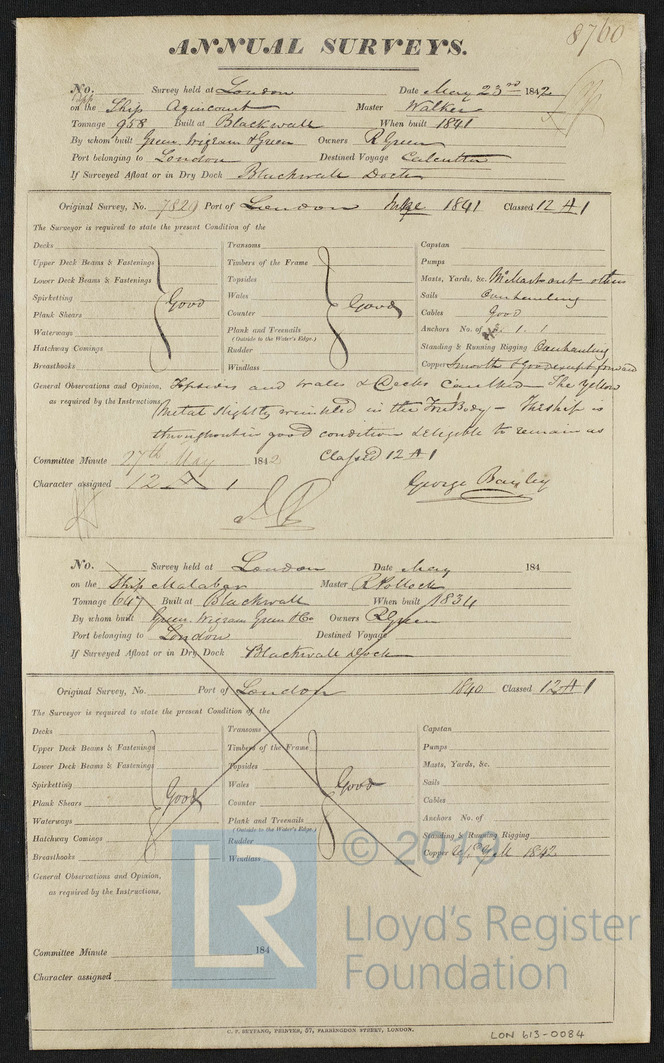 8760
ANNUAL SURVEYS.
No. Survey held at London Date May 23rd 1842
on the Ship Agincourt Master Walker
Tonnage 958 Built at Blackwall When built 1841
By whom built Green, Wigram & Green Owners R Green
Port belonging to London Destined Voyage Calcutta
If Surveyed Afloat or in Dry Dock Blackwall Dock
Original Survey, No. 7829 Port of London 1841 Classed 12 A 1
The Surveyor is required to state the present Condition of the
Decks
Upper Deck Beams & Fastenings
Lower Deck Beams & Fastenings
Spirketting
Good
Plank Shears
Waterways
Hatchway Comings
Breasthooks
Transoms
Timbers of the Frame
Topsides
Wales
Good
Counter
Plank and Treenails
(Outside to the Water's Edge.)
Rudder
Windlass
Capstan
Pumps
Masts, Yards, &c. out others
Sails Overhauling
Cables Good
Anchors No. of 1. 1
Standing & Running Rigging Overhauling
Copper Smooth & Good except forward
General Observations and Opinion, Topsides and Wales & Decks Caulked – The Yellow
as required by the Instructions, Metal slightly wrinkled in the Fore Body – The ship is
throughout in good condition & eligible to remain as
Classed 12 A 1
Committee Minute 27th May 1842
Character assigned 12 A 1
George Bayley
No. Survey held at London Date May 184
on the Ship Malabar Master R Pollock
Tonnage 647 Built at Blackwall When built 1834
By whom built Green, Wigram Green & Co Owners R Green
Port belonging to London Destined Voyage
If Surveyed Afloat or in Dry Dock Blackwall Dock
Original Survey, No. Port of London 1840 Classed 12 A 1
The Surveyor is required to state the present Condition of the
Decks
Upper Deck Beams & Fastenings
Lower Deck Beams & Fastenings
Spirketting
Good
Plank Shears
Waterways
Hatchway Comings
Breasthooks
Transoms
Timbers of the Frame
Topsides
Wales
Good
Counter
Plank and Treenails
(Outside to the Water's Edge.)
Rudder
Windlass
Capstan
Pumps
Masts, Yards, &c.
Sails
Cables
Anchors No. of
Standing & Running Rigging
Copper 1842
General Observations and Opinion,
as required by the Instructions,
Committee Minute 184
Character assigned
C. F. SEYFANG, PRINTER, 57, FARRINGDON STREET, LONDON.
LON 613-0084
LR
© 2019
Lloyd's Register
Foundation